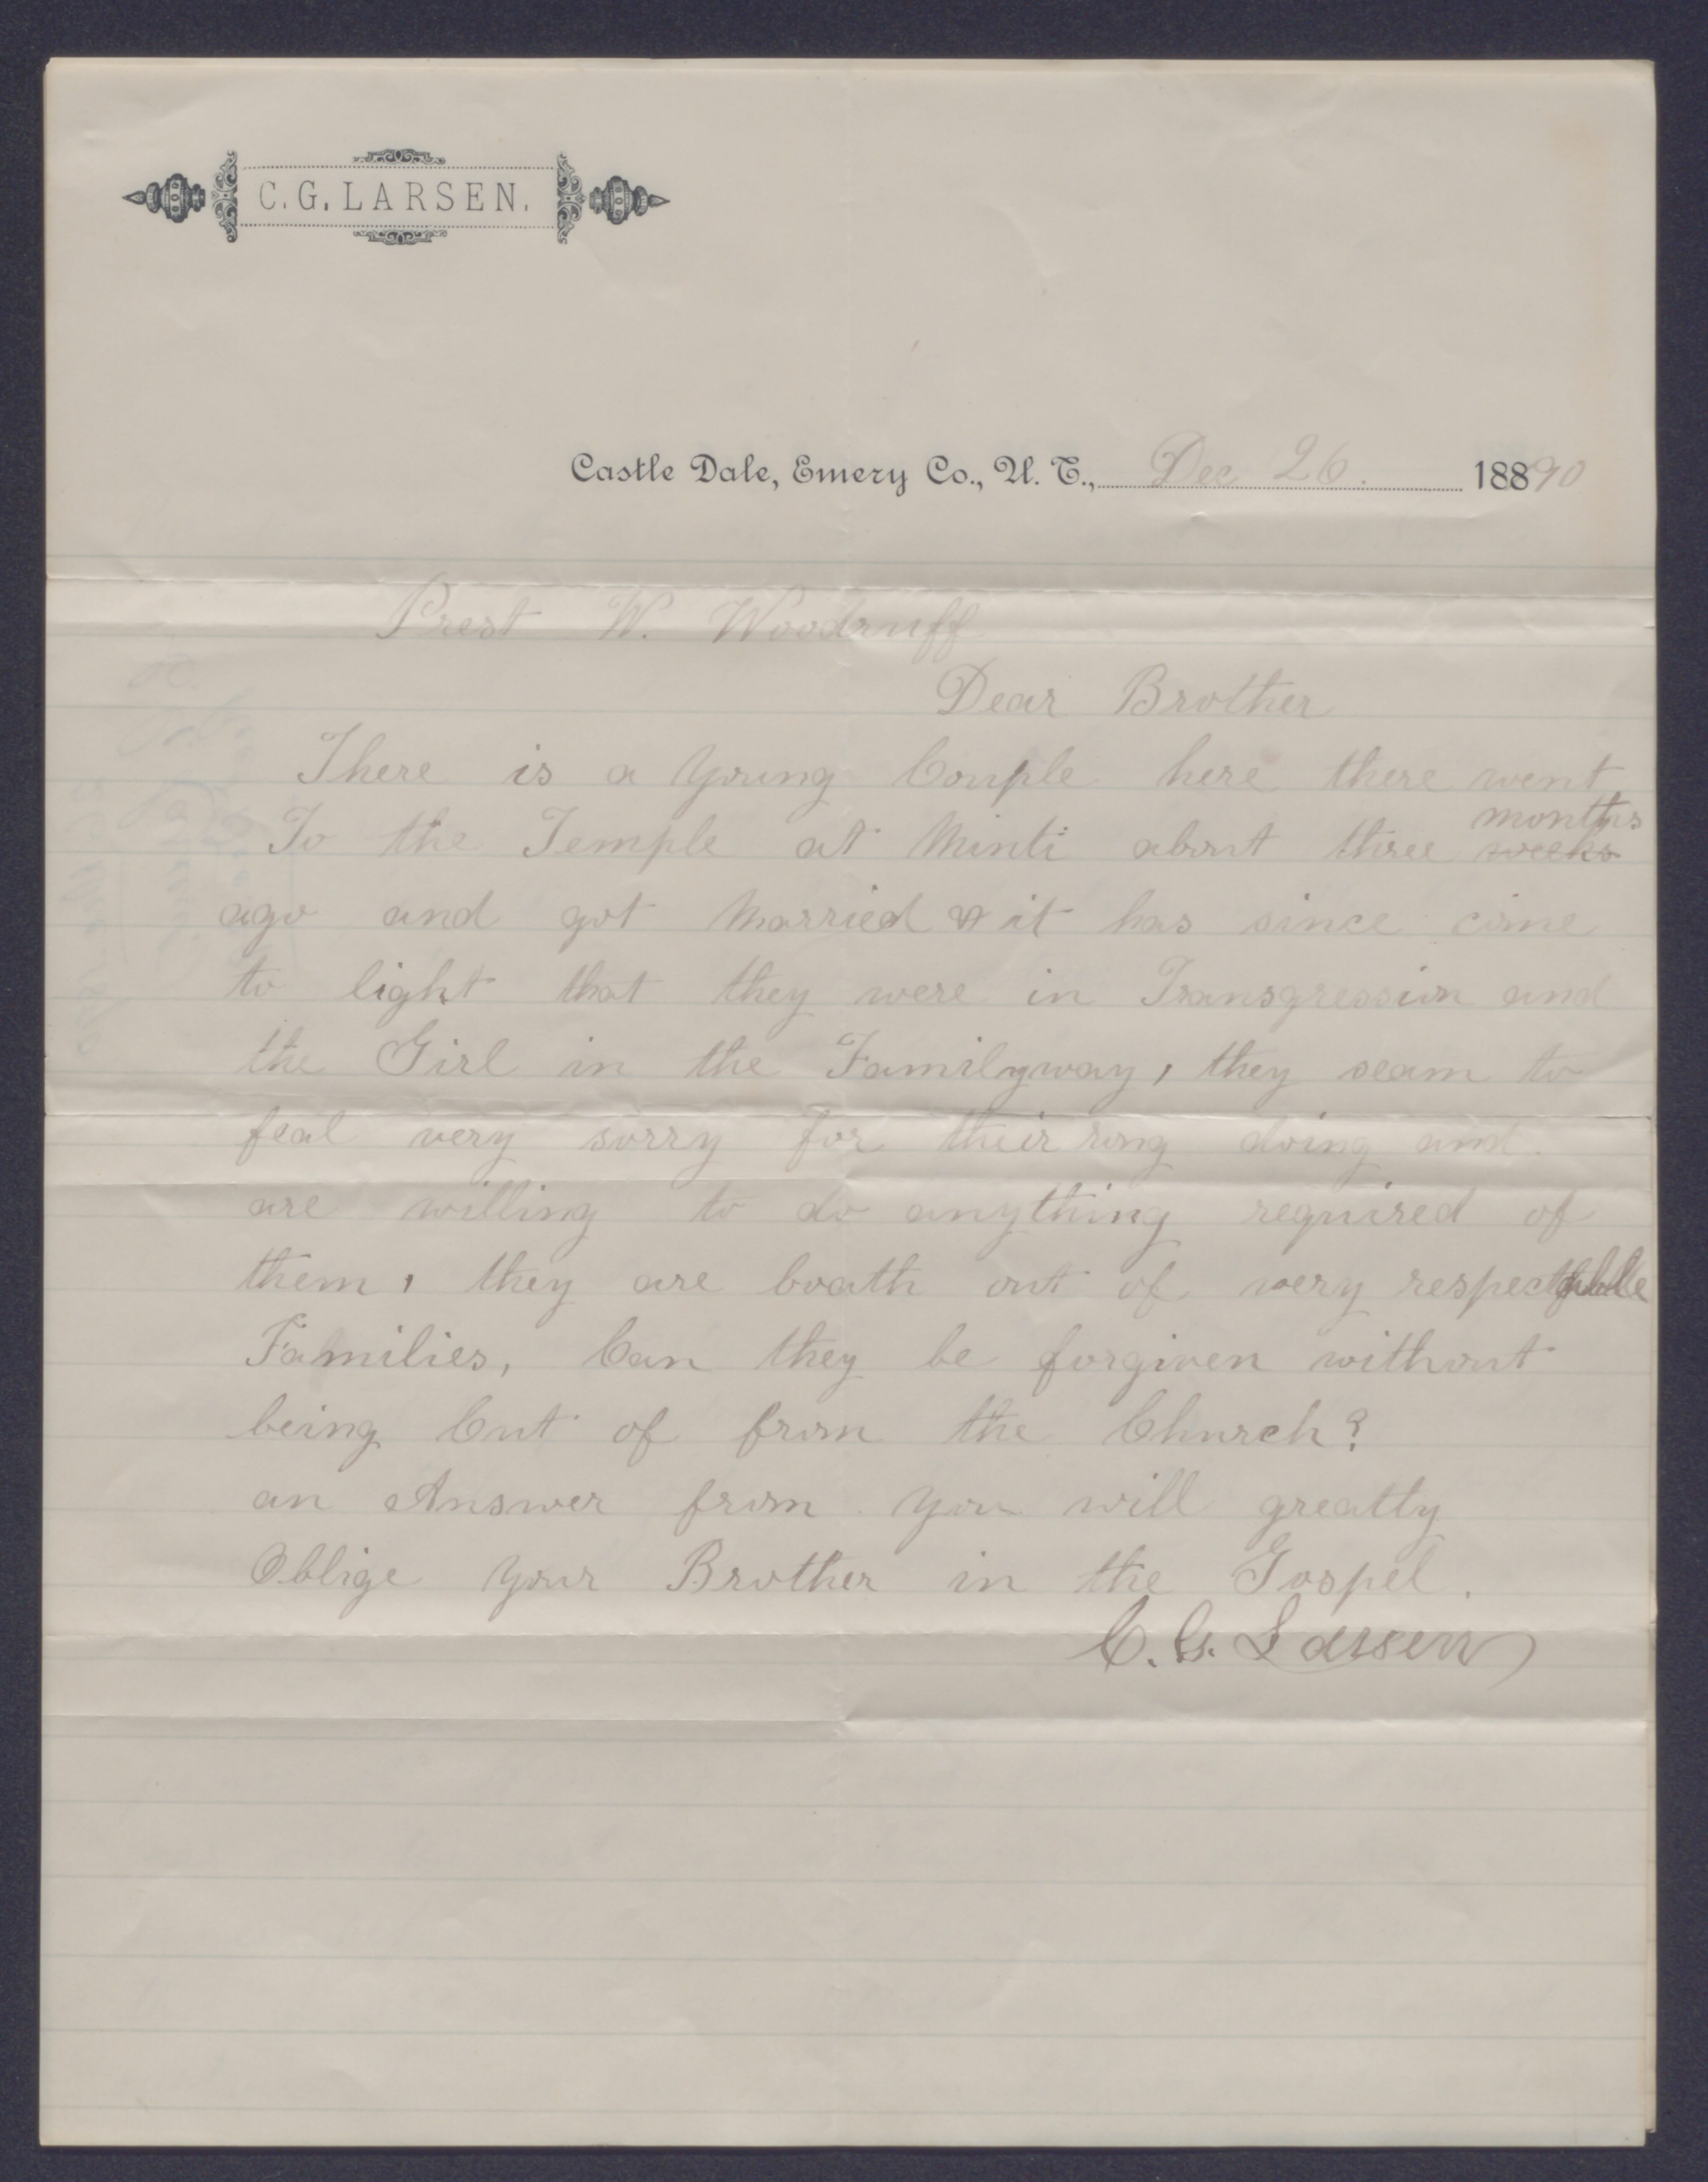 C. G. LARSEN.
Castle Dale, Emery Co., U. T., Dec 26. 18890
Prest W. Woodruff
Dear Brother
There is a young Couple here there went
To the Temple at Minti about three weeks months
ago and got Married & it has since come
to light that they were in Transgression and
the Girl in the Familyway, they seam to
feal very sorry for their rong doing and
are willing to do anything required of
them, they are boath out of very respectable
Families, Can they be forgiven without
being Cut of from the Church?
an Answer from you will greatly
Oblige your Brother in the Gospel.
C. G. Larsen